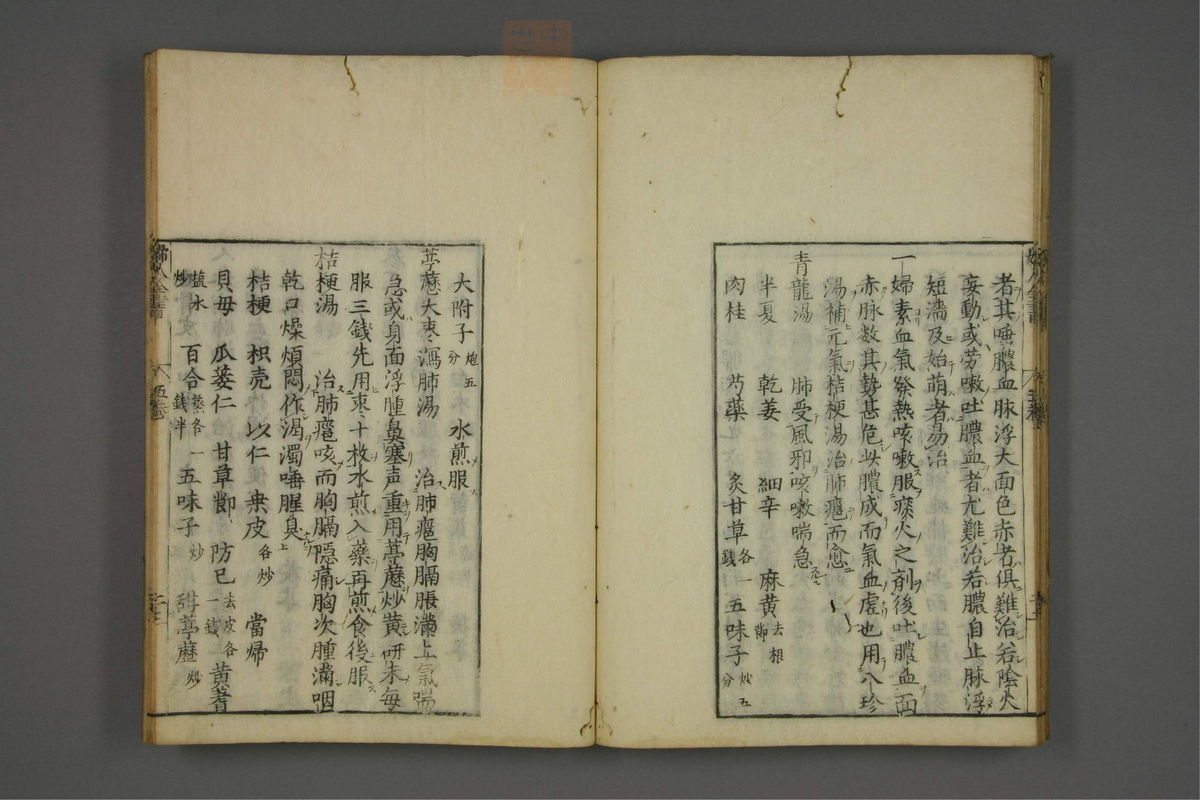 者其唾膿血脉浮大面色赤者俱難治若陰火
妄動或労嗽吐膿血者尤難治若膿自止脉浮
短濇及始萌者易治
一婦素血氣發熱咳嗽服痰火之剤後吐膿血面
赤脉数其勢甚危此膿成而氣血虚也用八珍
湯補元氣桔梗湯治肺癰而愈
青龍湯 肺受風邪咳嗽喘急
半夏 乾姜 細辛 麻黄去根節
肉桂 芍藥 炙甘草各一錢 五味子炒五分
大附子炮五分 水煎服
葶藶大枣瀉肺湯 治肺癰胸膈脹滿上氣喘
急或身面浮腫鼻塞声重用葶藶炒黄研末每
服三錢先用枣十枚水煎入藥再煎食後服
桔梗湯 治肺癰咳而胸膈隠痛胸次腫滿咽
乾口燥煩悶作渇濁唾腥臭
桔梗 枳壳 苡仁 桒皮各炒 當帰
貝母 瓜蔞仁 甘草節 防已去皮各一錢 黄蓍
塩水炒 百合蒸各一錢半 五味子炒 甜葶藶炒